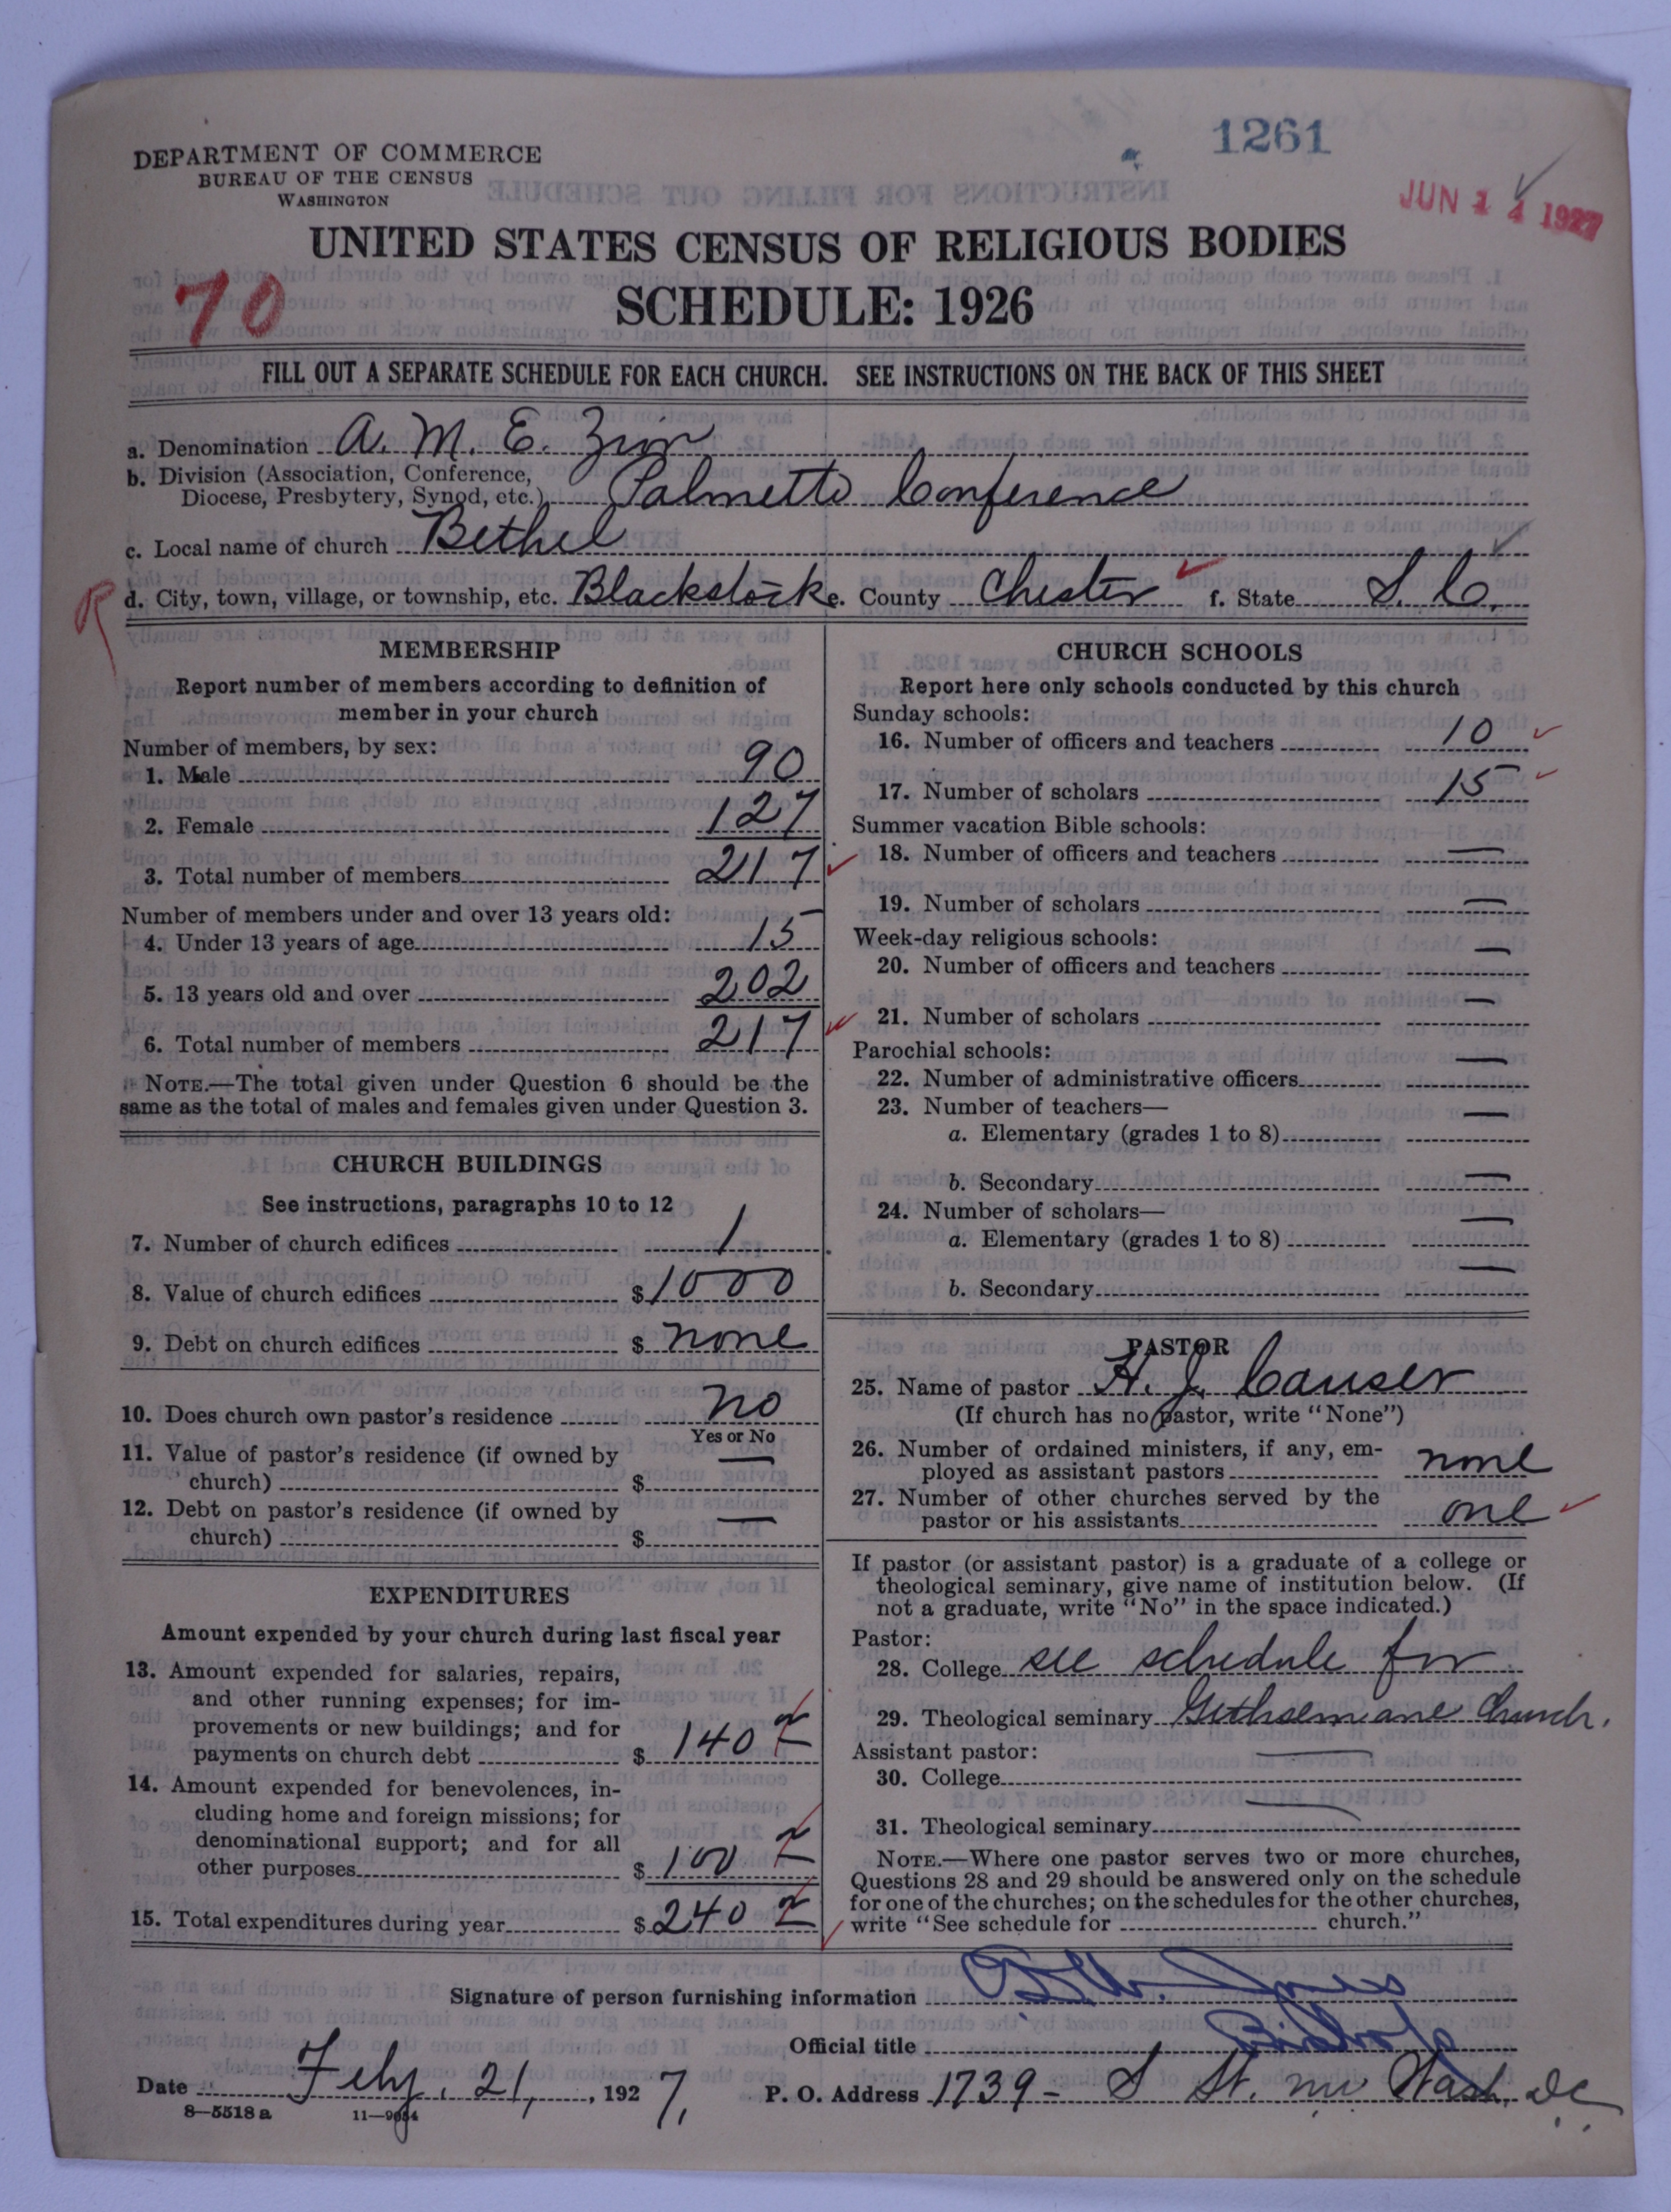 1261
DEPARTMENT OF COMMERCE
BUREAU OF THE CENSUS
WASHINGTON
JUN 14 1927
UNITED STATES CENSUS OF RELIGIOUS BODIES
70
SCHEDULE: 1926
FILL OUT A SEPARATE SCHEDULE FOR EACH CHURCH. SEE INSTRUCTIONS ON THE BACK OF THIS SHEET
a. Denomination A. M. E. Zion
b. Division (Association, Conference,
Diocese, Presbytery, Synod, etc.) Palmetto Conference
c. Local name of church Bethel
R d. City, town, village, or township, etc. Blackstock e. County Chester f. State S. C.
MEMBERSHIP
Report number of members according to definition of
member in your church
Number of members, by sex:
1. Male 90
2. Female 127
3. Total number of members 217
Number of members under and over 13 years old:
4. Under 13 years of age 15
5. 13 years old and over 202
6. Total number of members 217
NOTE.—The total given under Question 6 should be the
same as the total of males and females given under Question 3.
CHURCH BUILDINGS
See instructions, paragraphs 10 to 12
7. Number of church edifices 1
8. Value of church edifices $1000
9. Debt on church edifices $ none
10. Does church own pastor's residence No
Yes or No
11. Value of pastor's residence (if owned by
church) $ —
12. Debt on pastor's residence (if owned by
church) $ —
EXPENDITURES
Amount expended by your church during last fiscal year
13. Amount expended for salaries, repairs,
and other running expenses; for im-
provements or new buildings; and for
payments on church debt $ 140
14. Amount expended for benevolences, in-
cluding home and foreign missions; for
denominational support; and for all
other purposes $ 100
15. Total expenditures during year $ 240
CHURCH SCHOOLS
Report here only schools conducted by this church
Sunday schools:
16. Number of officers and teachers 10
17. Number of scholars 15
Summer vacation Bible schools:
18. Number of officers and teachers —
19. Number of scholars —
Week-day religious schools:
20. Number of officers and teachers —
21. Number of scholars —
Parochial schools:
22. Number of administrative officers —
23. Number of teachers—
a. Elementary (grades 1 to 8) —
b. Secondary —
24. Number of scholars—
a. Elementary (grades 1 to 8) —
b. Secondary —
PASTOR
25. Name of pastor H. J. Causer
(If church has no pastor, write "None")
26. Number of ordained ministers, if any, em-
ployed as assistant pastors none
27. Number of other churches served by the
pastor or his assistants one
If pastor (or assistant pastor) is a graduate of a college or
theological seminary, give name of institution below. (If
not a graduate, write "No" in the space indicated.)
Pastor:
28. College see schedule for
29. Theological seminary Gethsemane Church.
Assistant pastor:
30. College —
31. Theological seminary —
NOTE.—Where one pastor serves two or more churches,
Questions 28 and 29 should be answered only on the schedule
for one of the churches; on the schedules for the other churches,
write "See schedule for church."
Signature of person furnishing information Jones
Official title Bishop
Date Feby. 21, 1927, P. O. Address 1739 - S St. nw Wash. DC
8—5518 a 11—9054